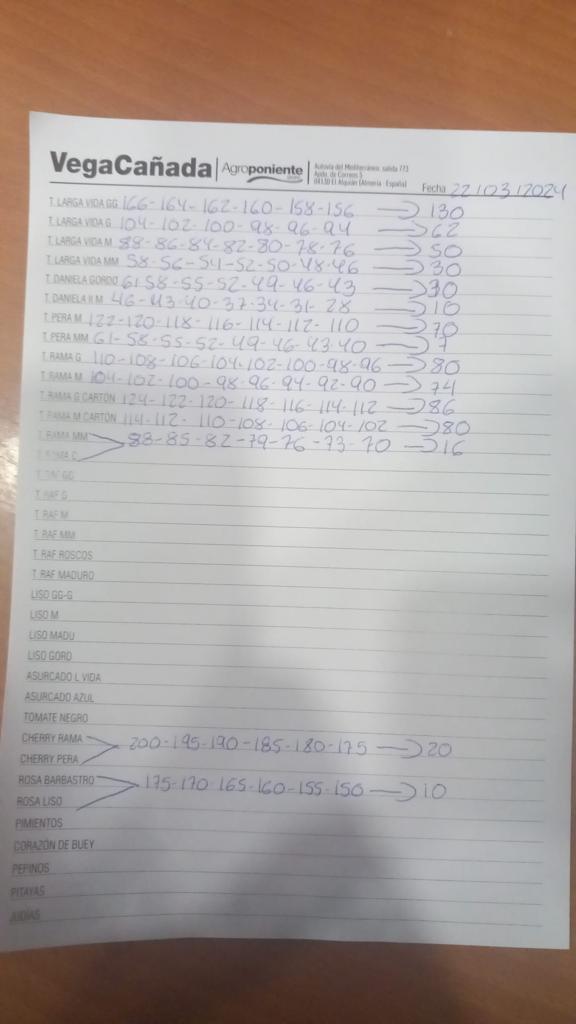 VegaCañada Agroponiente
Autovía del Mediterráneo, salida 773
Apdo. de Correos 5
04130 El Alquián (Almería · España)
Fecha 22/03/2024
T. LARGA VIDA GG 166-164-162-160-158-156 → 130
T. LARGA VIDA G 104-102-100-98-96-94 → 62
T. LARGA VIDA M 88-86-84-82-80-78-76 → 50
T. LARGA VIDA MM 58-56-54-52-50-48-46 → 30
T. DANIELA GORDO 61-58-55-52-49-46-43 → 30
T. DANIELA II M 46-43-40-37-34-31-28 → 10
T. PERA M 122-120-118-116-114-112-110 → 70
T. PERA MM 61-58-55-52-49-46-43-40 → 7
T. RAMA G 110-108-106-104-102-100-98-96 → 80
T. RAMA M 104-102-100-98-96-94-92-90 → 74
T. RAMA G CARTÓN 124-122-120-118-116-114-112 → 86
T. RAMA M CARTÓN 114-112-110-108-106-104-102 → 80
T. RAMA MM 88-85-82-79-76-73-70 → 16
T. ROMA C
T. RAF GG
T. RAF G
T. RAF M
T. RAF MM
T. RAF ROSCOS
T. RAF MADURO
LISO GG-G
LISO M
LISO MADU
LISO GORD
ASURCADO L VIDA
ASURCADO AZUL
TOMATE NEGRO
CHERRY RAMA 200-195-190-185-180-175 → 20
CHERRY PERA
ROSA BARBASTRO 175-170-165-160-155-150 → 10
ROSA LISO
PIMIENTOS
CORAZÓN DE BUEY
PEPINOS
PITAYAS
JUDÍAS